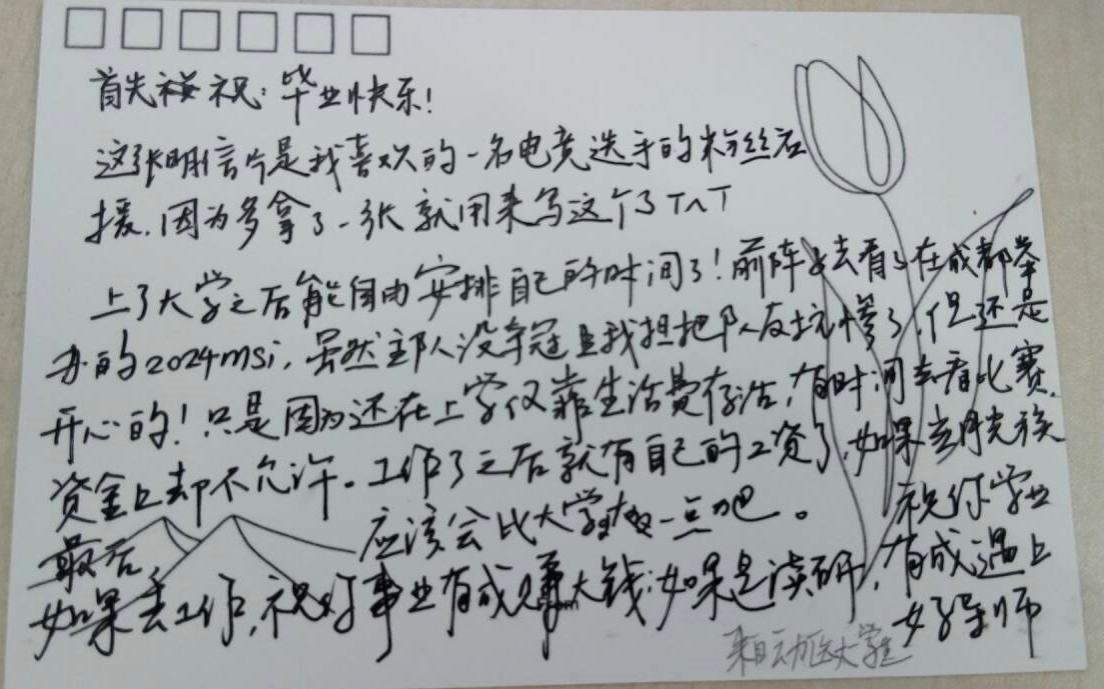 首先祝:毕业快乐!
这张明信片是我喜欢的一名电竞选手的粉丝应
援,因为多拿了一张就用来写这个了TAT
上了大学之后能自由安排自己的时间了!前阵子去看了在成都举
办的2024msi,虽然主队没夺冠且我担把队友坑惨了,但还是
开心的!只是因为还在上学仅靠生活费存活,有时间去看比赛,
资金上却不允许。工作了之后就有自己的工资了,如果当月光族
应该会比大学一点吧。
最后,祝你学业有成遇上好导师
如果去工作,祝好事业有成赚大钱;如果是读研,
来自动医大学生